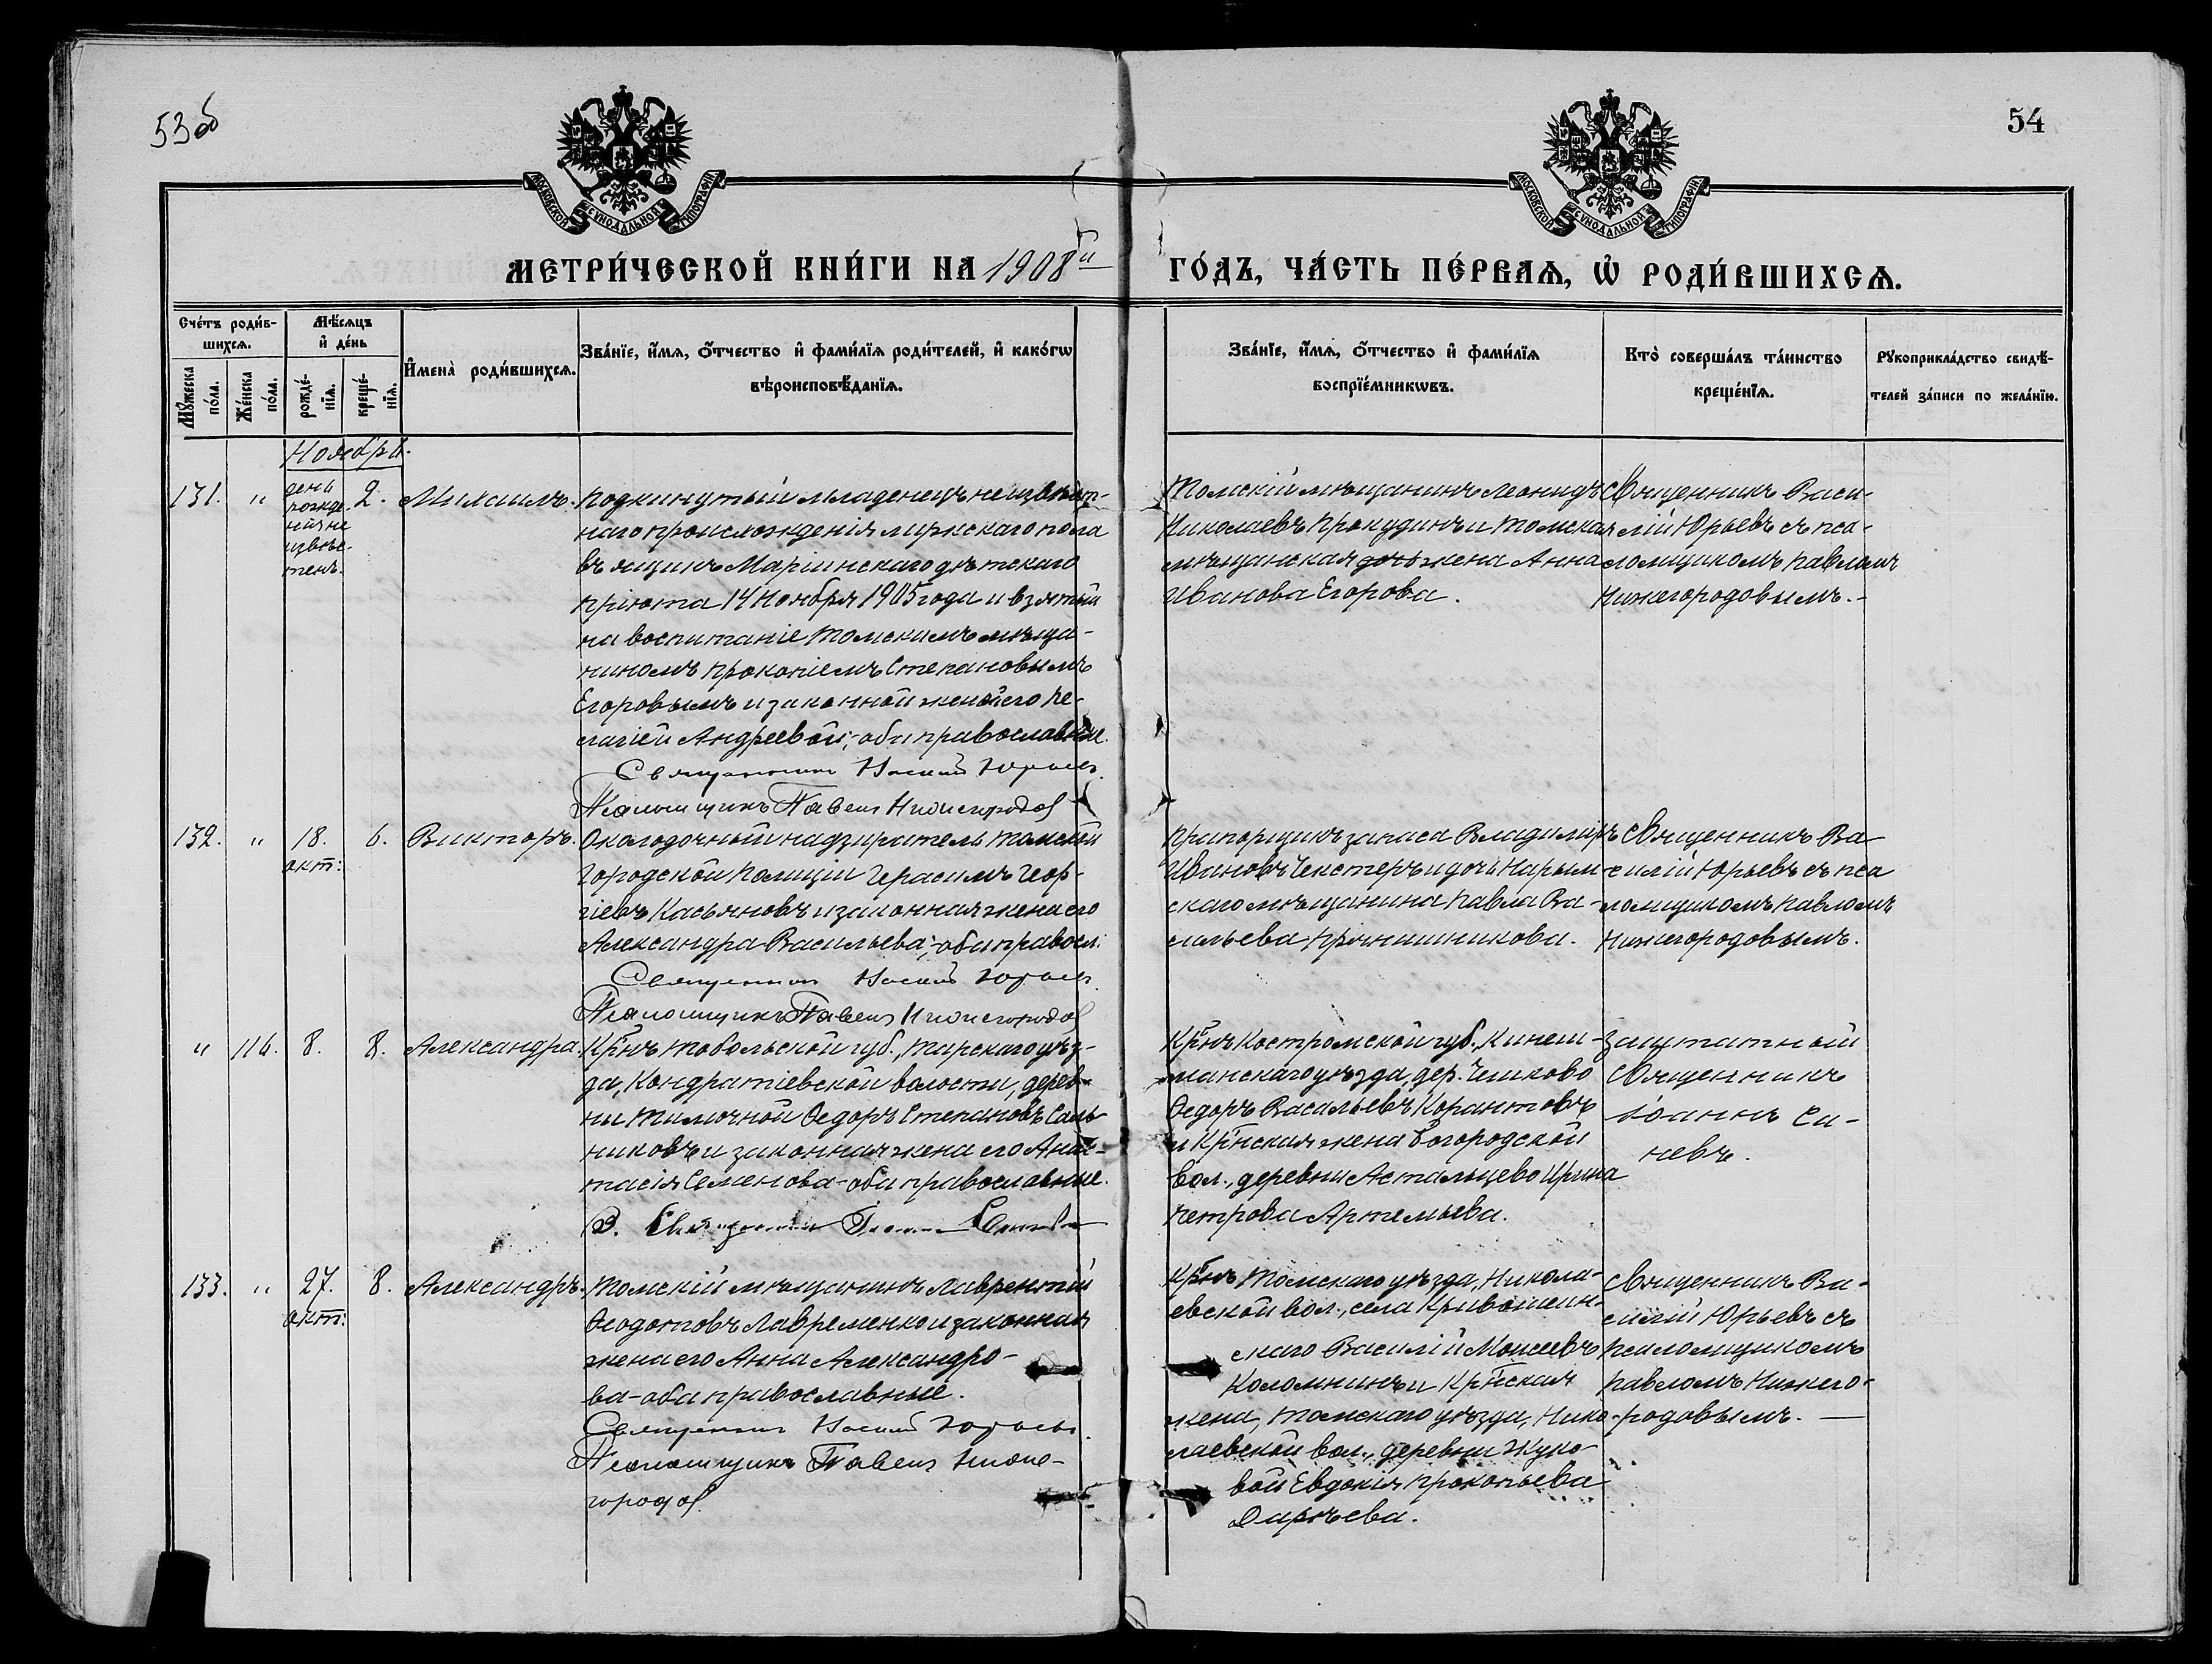 53об
54
МОСКОВСКОЙ СУНОДАЛЬНОЙ ТИПОГРАФІИ.
МОСКОВСКОЙ СУНОДАЛЬНОЙ ТИПОГРАФІИ.
МЕТРИ́ЧЕСКОЙ КНИ́ГИ НА 1908й ГО́ДЪ, ЧА́СТЬ ПЕ́РВАѦ, Ѽ РОДИ́ВШИХСѦ.
Сче́тъ роди́в-
шихсѧ.
Мꙋ́жеска
по́ла.
Же́нска
по́ла.
Мѣ́сѧцъ
и҆ де́нь
рожде́-
нїѧ.
креще́-
нїѧ.
И҆мена̀ роди́вшихсѧ.
Зва́нїе, и҆́мѧ, ѻ҆́тчество и҆ фами́лїѧ роди́телей, и҆ како́гѡ
вѣроисповѣ́данїѧ.
Зва́нїе, и҆́мѧ, ѻ҆́тчество и҆ фами́лїѧ
воспрїе́мникѡвъ.
Кто̀ соверша́лъ та́инство
креще́нїѧ.
Рꙋкоприкла́дство свидѣ́-
телей за́писи по жела́нїю.
Ноябрь.
131. " день рожде-
нія не
извѣс-
тенъ.
2. Михаилъ.
Подкинутый младенецъ неизвѣст-
наго происхожденія мужскаго пола
въ ящикъ Маріинскаго дѣтскаго
пріюта 14 Ноября 1905 года и взятый
на воспитаніе Томскимъ мѣща-
ниномъ Прокопіемъ Степановымъ
Егоровымъ и законной женой его Пе-
лагіей Андреевой; оба православные.
Священникъ Василій Юрьевъ
Псаломщикъ Павелъ Нижегородов
Томскій мѣщанинъ Леонидъ
Николаевъ Прокудинъ и Томская
мѣщанская дочь жена Анна
Иванова Егорова.
Священникъ Васи-
лій Юрьевъ съ пса-
ломщикомъ Павломъ
Нижегородовымъ.-
132. " 18. окт: 6. Викторъ.
Околодочный надзиратель Томской
Городской Полиціи Герасимъ Геор-
гіевъ Касьяновъ и законная жена его
Александра Васильева; оба правосл.
Священникъ Василій Юрьевъ
Псаломщикъ Павелъ Нижегородов
Прапорщикъ запаса Владиміръ
Ивановъ и дочь Нарым-
скаго мѣщанина Павла Ва-
сильева Прянишникова.
Священникъ Ва
силій Юрьевъ съ пса
ломщикомъ Павломъ
Нижегородовымъ.
" 116. 8. 8. Александра.
Кр̃нъ Тобольской губ., Тарскаго уѣз-
да, Кондратіевской волости, дерев-
ни Ѳедоръ Степановъ Саль-
никовъ и законная жена его Анас-
тасія Семенова - оба православные.
З. Священникъ Іоаннъ
Кр̃нъ Костромской губ., Кинеш-
манскаго уѣзда, дер.
Ѳедоръ Васильевъ
и Кр̃нская жена Богородской
вол., деревни Астальцево Ирина
Петрова Артемьева.
Заштатный
Священникъ
Іоаннъ Си-
невъ.
133. " 27. окт: 8. Александръ.
Томскій мѣщанинъ Лаврентій
Ѳеодотовъ Лавременко и законная
жена его Анна Александро-
ва - оба православные.
Священникъ Василій Юрьевъ
Псаломщикъ Павелъ Ниже-
городов
Кр̃нъ Томскаго уѣзда, Никола-
евской вол., села Кривошеин-
скаго Василій Моисеевъ
Коломнинъ и Кр̃нская
жена, Томскаго уѣзда, Нико-
лаевской вол., деревни Жуко-
вой Евдокія Прокопьева
Священникъ Ва-
силій Юрьевъ съ
псаломщикомъ
Павломъ Нижего-
родовымъ. —